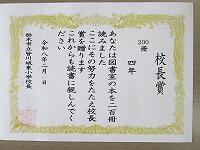 校長賞
200冊
四年
あなたは図書室の本を二百冊
読みました
ここにその努力をたたえ校長
賞を贈ります
これからも読書に親しんで
ください
令和八年二月 日
栃木市立皆川城東小学校長